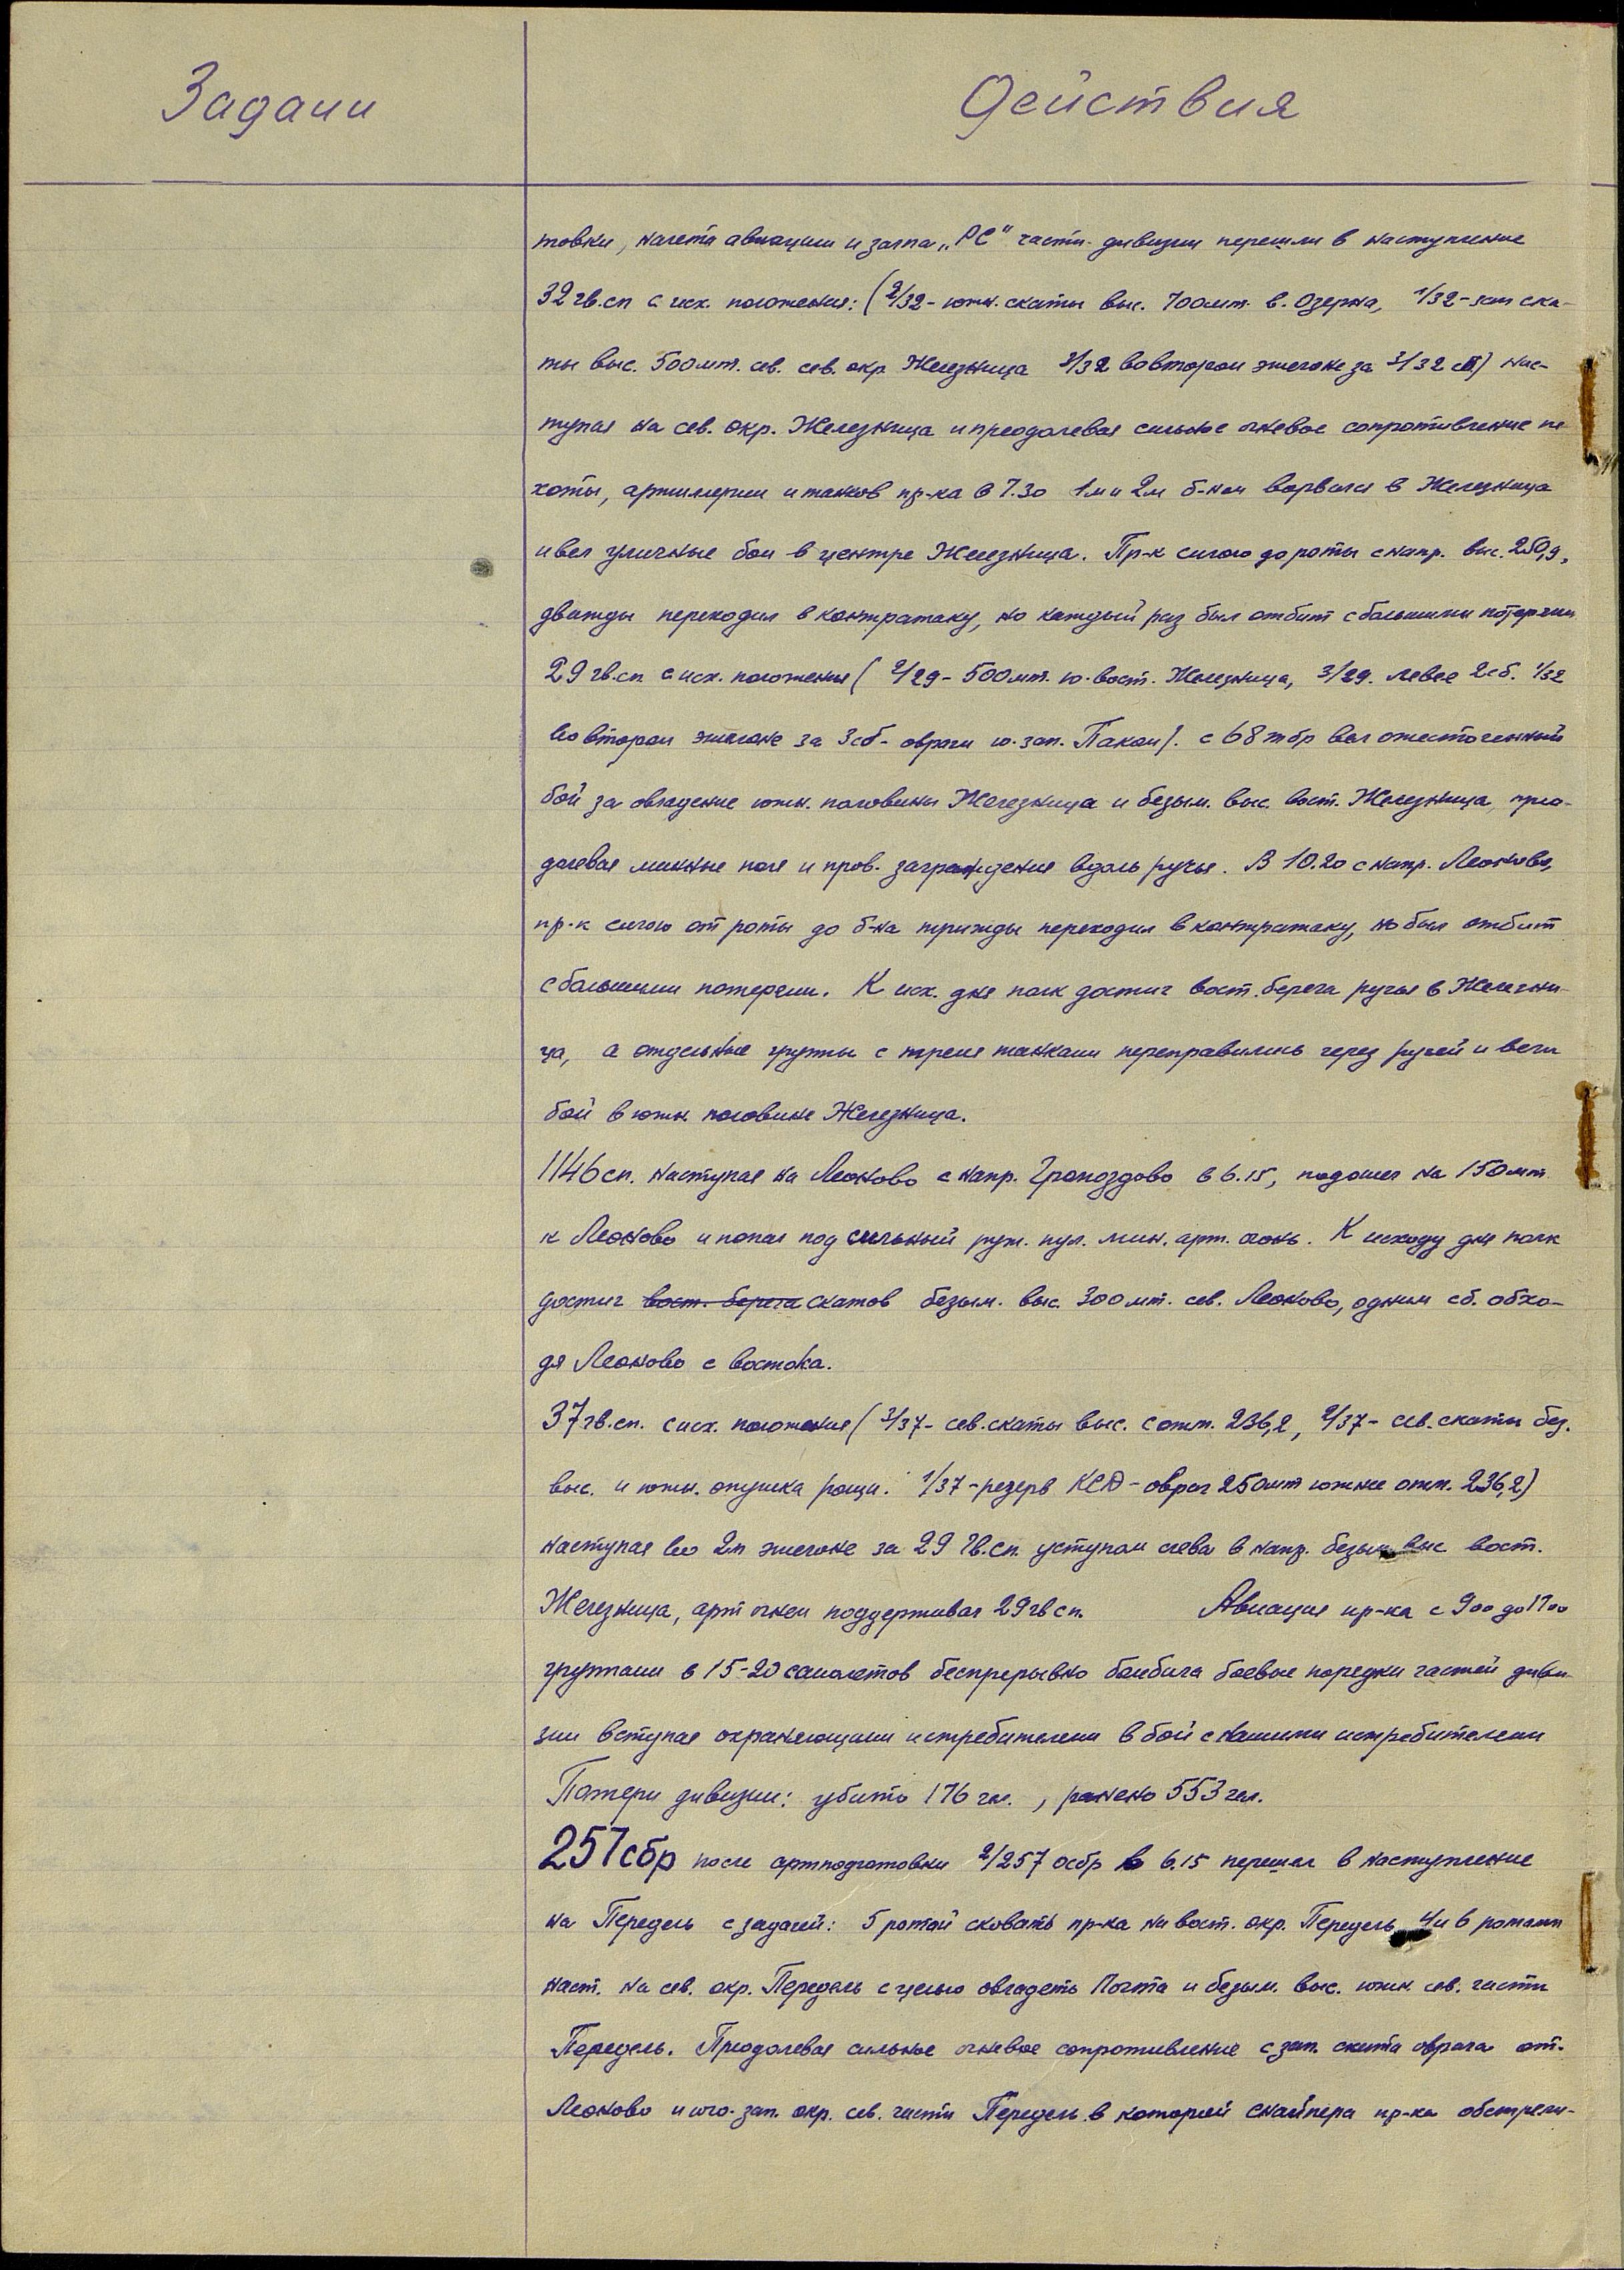 Задачи
Действия
товки, налета авиации и залпа „РС" части дивизии перешли в наступление
32 гв.сп с исх. положения: (2/32 - южн. скаты выс. 700 мт. в. Озерна, 1/32 - зап ска-
ты выс. 500 мт. сев. сев. окр Железница 3/32 во втором эшелоне за сб) нас-
тупая на сев. окр. Железница и преодолевая сильное огневое сопротивление пе
хоты, артиллерии и танков пр-ка в 7.30 1м и 2м б-ном ворвался в Железница
и вел уличные бои в центре Железница. Пр-к силою до роты с напр. выс. 250,9,
дважды переходил в контратаку, но каждый раз был отбит с большими потерями
29 гв.сп. с исх. положения ( 2/29 - 500 мт. ю-вост. Железница, 3/29. левее 2сб.
во втором эшелоне за 3сб - овраги ю. зап. ). с 68 тбр вел ожесточенный
бой за овладение южн. половины Железница и безым. выс. вост. Железница, прео-
долевая минные поля и пров. заграждения вдоль ручья. В 10.20 с напр. Леоново,
пр-к силою от роты до б-на трижды переходил в контратаку, но был отбит
с большими потерями. К исх. дня полк достиг вост. берега ручья в Железни-
ца, а отдельные группы с тремя танками переправились через ручей и вели
бой в южн. половине Железница.
1146 сп. наступая на Леоново с напр. Громоздово в 6.15, подошел на 150 мт.
к Леоново и попал под сильный руж. пул. мин. арт. огонь. К исходу дня полк
достиг вост. берега скатов безым. выс. 300 мт. сев. Леоново, одним сб. обхо-
дя Леоново с востока.
37 гв.сп. с исх. положения ( 3/37 - сев. скаты выс. с отм. 236,2, 2/37 - сев. скаты без.
выс. и южн. опушка рощи. 1/37 - резерв КСД - овраг 250 мт южнее отм. 236,2)
наступая во 2м эшелоне за 29 гв.сп. уступом слева в напр. безым. выс вост.
Железница, арт огнем поддерживал 29 гв сп. Авиация пр-ка с 9 00 до 17 00
группами в 15-20 самолетов беспрерывно бомбила боевые порядки частей диви-
зии вступая охраняющими истребителями в бой с нашими истребителями
Потери дивизии: убито 176 чел., ранено 553 чел.
257 сбр после артподготовки 2/257 осбр в 6.15 перешел в наступление
на Передель с задачей: 5 ротой сковать пр-ка на вост. окр. Передель 4 и 6 ротами
наст. на сев. окр. Передель с целью овладеть Почта и безым. выс. южн. сев. части
Передель. Преодолевая сильное огневое сопротивление с зап. ската оврага от.
Леоново и юго-зап. окр. сев. части Передель в которой снайпера пр-ка обстрели-